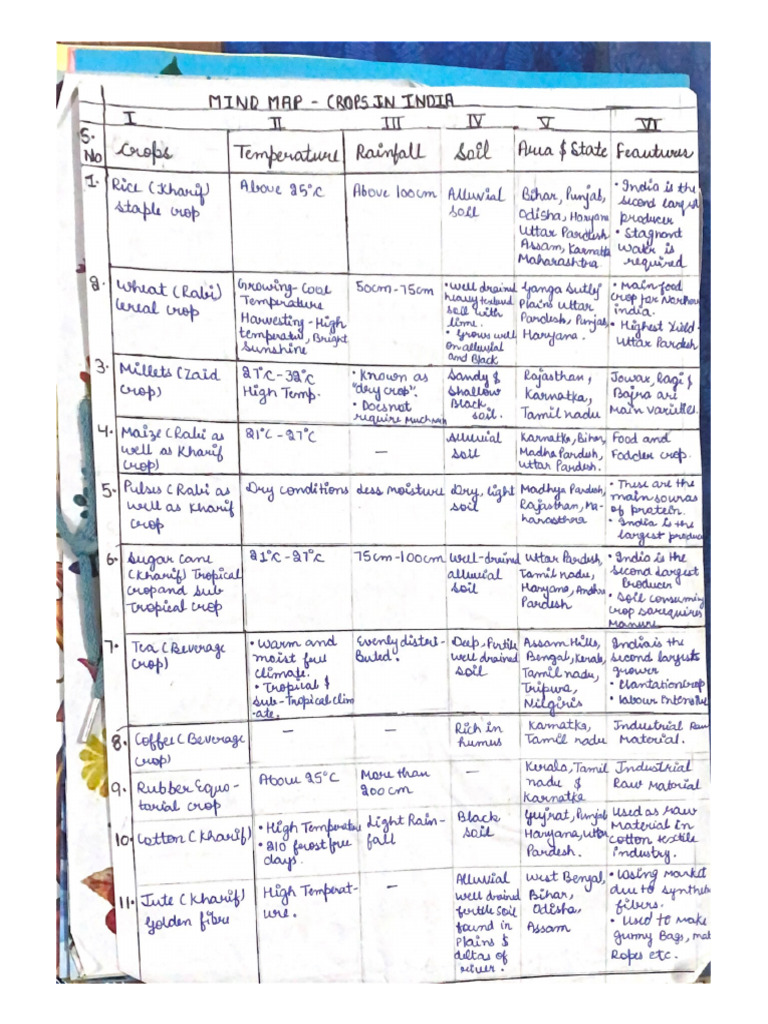 MIND MAP - CROPS IN INDIA
I II III IV V VI
S. No Crops Temperature Rainfall Soil Area & State Feautures
1. Rice (Kharif)
staple crop
Above 25°C
Above 100cm
Alluvial
soil
Bihar, Punjab,
Odisha, Haryana
Uttar Pardesh
Assam, Karnatka
Maharashtra
• India is the
second largest
producer
• Stagnant
water is
required
2. Wheat (Rabi)
Cereal crop
Growing - Cool
Temperature
Harvesting - High
temperatur, Bright
Sunshine
50cm-75cm
• Well drained
heavy textured
soil with
lime.
• Grows well
on alluvial
and Black
Ganga Sutlej
Plains Uttar
Pardesh, Punjab,
Haryana.
• Main food
crop for Northern
india.
• Highest Yield -
Uttar Pardesh
3. Millets (Zaid
crop)
27°C-32°C
High Temp.
• Known as
"dry crop".
• Doesnot
require Much
Sandy &
Shallow
Black
soil.
Rajasthan,
Karnatka,
Tamil nadu
Jowar, Ragi &
Bajra are
Main varities.
4. Maize (Rabi as
well as Kharif
crop)
21°C - 27°C
—
Alluvial
soil
Karnatka, Bihar,
Madha Pardesh,
Uttar Pardesh.
Food and
Fodder crop.
5. Pulses (Rabi as
well as Kharif
crop
Dry conditions
Less moisture
Dry, light
soil
Madhya Pardesh,
Rajasthan, Ma-
harasthra
• These are the
main sources
of protein.
• India is the
largest produce
6. Sugar cane
(Kharif) Tropical
crop and Sub
Tropical crop
21°C-27°C
75cm-100cm
Well-drained
alluvial
soil
Uttar Pardesh,
Tamil nadu,
Haryana, Andhra
Pardesh
• India is the
second Largest
Producer
• Soil consuming
crop so requires
Manure
7. Tea (Beverage
crop)
• Warm and
moist free
climate.
• Tropical &
Sub-Tropical clim
ate.
Evenly distri-
buted.
Deep, Fertile
well drained
soil
Assam Hills,
Bengal, Kerala,
Tamil nadu,
Tripura,
Nilgiris
India is the
second largests
grower
• Plantation Crop
• Labour Intensive
8. Coffee (Beverage
crop)
—
—
Rich in
humus
Karnatka,
Tamil nadu
Industrial Raw
Material.
9. Rubber Equo-
tarial crop
Above 25°C
More than
200cm
—
Kerala, Tamil
nadu &
Karnatka
Industrial
Raw Material
10. Cotton (Kharif)
• High Temperature
• 210 frost free
days.
Light Rain-
fall
Black
soil
Gujrat, Punjab
Haryana, Uttar
Pardesh.
Used as raw
Material in
cotton textile
industry.
11. Jute (Kharif)
Golden fibre
High Temperat-
ure.
—
Alluvial
well drained
fertile soil
found in
Plains &
deltas of
river.
West Bengal,
Bihar,
Odisha,
Assam
• Losing Market
due to synthetic
fibers.
• Used to Make
gunny Bags, mat
Ropes etc.